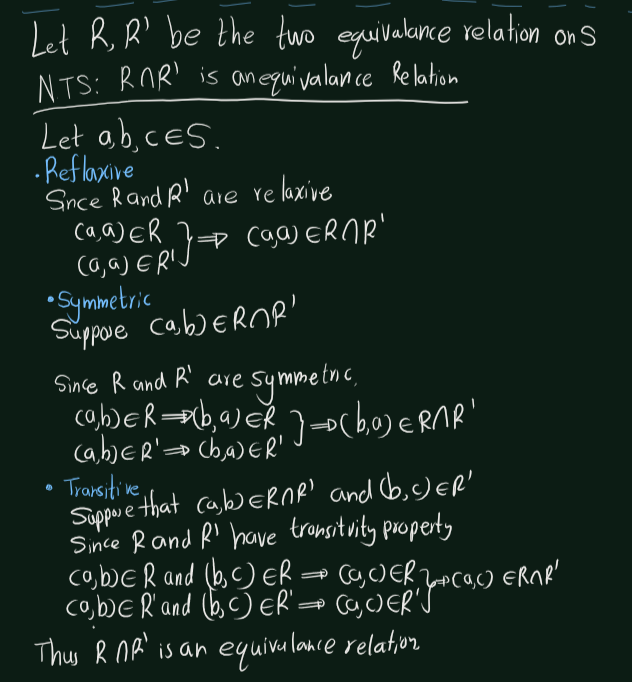 Let R, R' be the two equivalance relation on S
NTS: R∩R' is an equivalance Relation
Let a,b,c∈S.
• Reflaxive
Snce R and R' are relaxive
(a,a)∈R
(a,a)∈R' } ⇒ (a,a)∈R∩R'
• Symmetric
Suppose (a,b)∈R∩R'
Since R and R' are symmetric,
(a,b)∈R ⇒ (b,a)∈R
(a,b)∈R' ⇒ (b,a)∈R' } ⇒ (b,a)∈R∩R'
• Transitive
Suppose that (a,b)∈R∩R' and (b,c)∈R'
Since R and R' have transitvity property
(a,b)∈R and (b,c)∈R ⇒ (a,c)∈R
(a,b)∈R' and (b,c)∈R' ⇒ (a,c)∈R' } ⇒ (a,c)∈R∩R'
Thus R∩R' is an equivalance relation